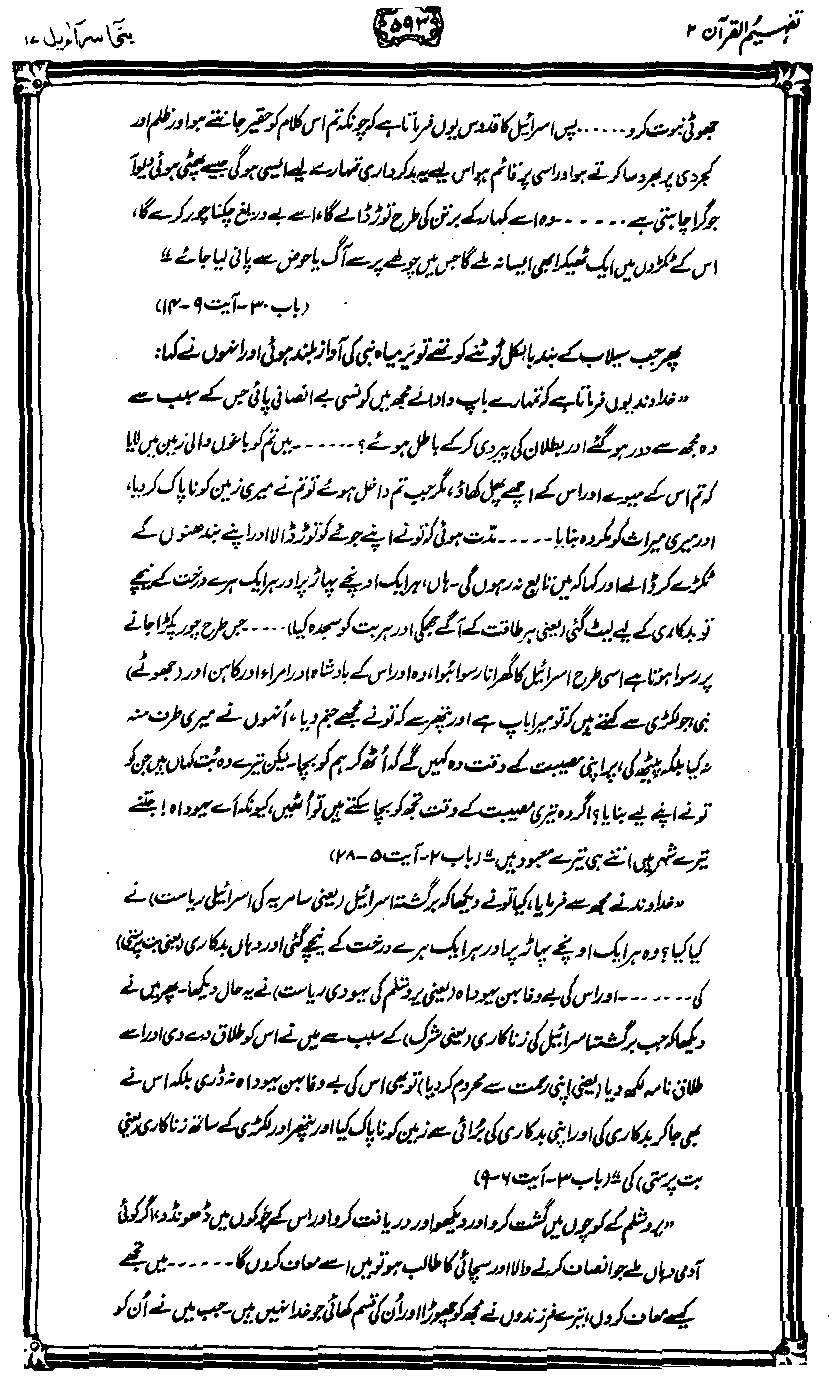 تفہیم القرآن ۲
۵۹۳
بنی اسرآءیل ۱۷
جھوٹی نبوت کرو ...... پس اسرائیل کا قدوس یوں فرماتا ہے کہ چونکہ تم اس کلام کو حقیر جانتے ہو اور ظلم اور
کجروی پر بھروسا کرتے ہو اور اسی پر قائم ہو اس لیے یہ بدکرداری تمہارے لیے ایسی ہوگی جیسے پھٹی ہوئی دیوار
جو گرا چاہتی ہے ...... وہ اسے کمہار کے برتن کی طرح توڑ ڈالے گا، اسے بے دریغ چکنا چور کرے گا،
اس کے ٹکڑوں میں ایک ٹھیکرا بھی ایسا نہ ملے گا جس میں چولھے پر سے آگ یا حوض سے پانی لیا جائے“
(باب ۳۰-آیت ۹-۱۴)
پھر جب سیلاب کے بند بالکل ٹوٹنے کو تھے تو یرمیاہ نبی کی آواز بلند ہوئی اور انہوں نے کہا:
”خداوند یوں فرماتا ہے کہ تمہارے باپ دادا نے مجھ میں کونسی بے انصافی پائی جس کے سبب سے
وہ مجھ سے دور ہو گئے اور بطلان کی پیروی کر کے باطل ہوئے؟ ...... میں تم کو باغوں والی زمین میں لایا
کہ تم اس کے میوے اور اس کے اچھے پھل کھاؤ، مگر جب تم داخل ہوئے تو تم نے میری زمین کو ناپاک کر دیا،
اور میری میراث کو مکروہ بنایا ..... مدت ہوئی کہ تو نے اپنے جوئے کو توڑ ڈالا اور اپنے بندھنوں کے
ٹکڑے کر ڈالے اور کہا کہ میں تابع نہ رہوں گی۔ ہاں، ہر ایک اونچے پہاڑ پر اور ہر ایک ہرے درخت کے نیچے
تو بدکاری کے لیے لیٹ گئی (یعنی ہر طاقت کے آگے جھکی اور ہر بت کو سجدہ کیا) ..... جس طرح چور پکڑا جانے
پر رسوا ہوتا ہے اسی طرح اسرائیل کا گھرانا رسوا ہوا، وہ اور اس کے بادشاہ اور امراء اور کاہن اور (جھوٹے)
نبی، جو لکڑی سے کہتے ہیں کہ تو میرا باپ ہے اور پتھر سے کہ تو نے مجھے جنم دیا، اُنہوں نے میری طرف منہ
نہ کیا بلکہ پیٹھ کی، پر اپنی مصیبت کے وقت وہ کہیں گے کہ اُٹھ کر ہم کو بچا۔ لیکن تیرے وہ بُت کہاں ہیں جن کو
تو نے اپنے لیے بنایا؟ اگر وہ تیری مصیبت کے وقت تجھ کو بچا سکتے ہیں تو اُٹھیں، کیونکہ اَے یہوداہ! جتنے
تیرے شہر ہیں اتنے ہی تیرے معبود ہیں“ (باب ۲-آیت ۵-۲۸)
”خداوند نے مجھ سے فرمایا، کیا تو نے دیکھا کہ برگشتہ اسرائیل (یعنی سامریہ کی اسرائیلی ریاست) نے
کیا کیا؟ وہ ہر ایک اونچے پہاڑ پر اور ہر ایک ہرے درخت کے نیچے گئی اور وہاں بدکاری (یعنی بت پرستی)
کی ....... اور اس کی بے وفا بہن یہوداہ (یعنی یروشلم کی یہودی ریاست) نے یہ حال دیکھا۔ پھر میں نے
دیکھا کہ جب برگشتہ اسرائیل کی زناکاری (یعنی شرک) کے سبب سے میں نے اس کو طلاق دے دی اور اسے
طلاق نامہ لکھ دیا (یعنی اپنی رحمت سے محروم کر دیا) تو بھی اس کی بے وفا بہن یہوداہ نہ ڈری بلکہ اس نے
بھی جا کر بدکاری کی اور اپنی بدکاری کی بُرائی سے زمین کو ناپاک کیا اور پتھر اور لکڑی کے ساتھ زناکاری (یعنی
بت پرستی) کی“ (باب ۳-آیت ۶-۹)
”یروشلم کے کوچوں میں گشت کرو اور دیکھو اور دریافت کرو اور اس کے چوکوں میں ڈھونڈو، اگر کوئی
آدمی وہاں ملے جو انصاف کرنے والا اور سچائی کا طالب ہو تو میں اسے معاف کروں گا ...... میں تجھے
کیسے معاف کروں، تیرے فرزندوں نے مجھ کو چھوڑا اور اُن کی قسم کھائی جو خدا نہیں ہیں۔ جب میں نے اُن کو